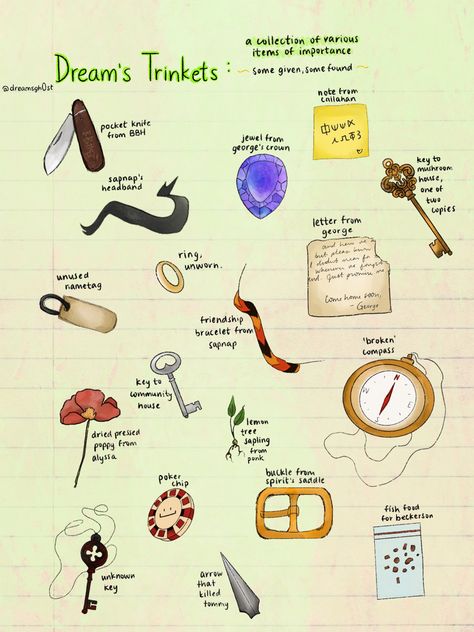 Dream's Trinkets :
a collection of various
items of importance
~ some given, some found ~
@dreamsgh0st
pocket knife
from BBH
note from
callahan
jewel from
george's crown
key to
mushroom
house,
one of
two
copies
sapnap's
headband
letter from
george
but please
Just promise me
Come home soon,
- George
ring,
unworn.
unused
nametag
friendship
bracelet from
sapnap
'broken'
compass
N
E
S
W
key to
community
house
dried pressed
poppy from
alyssa
lemon
tree
sapling
from
punk
poker
chip
buckle from
spirit's saddle
fish food
for beckerson
unknown
key
arrow
that
killed
tommy